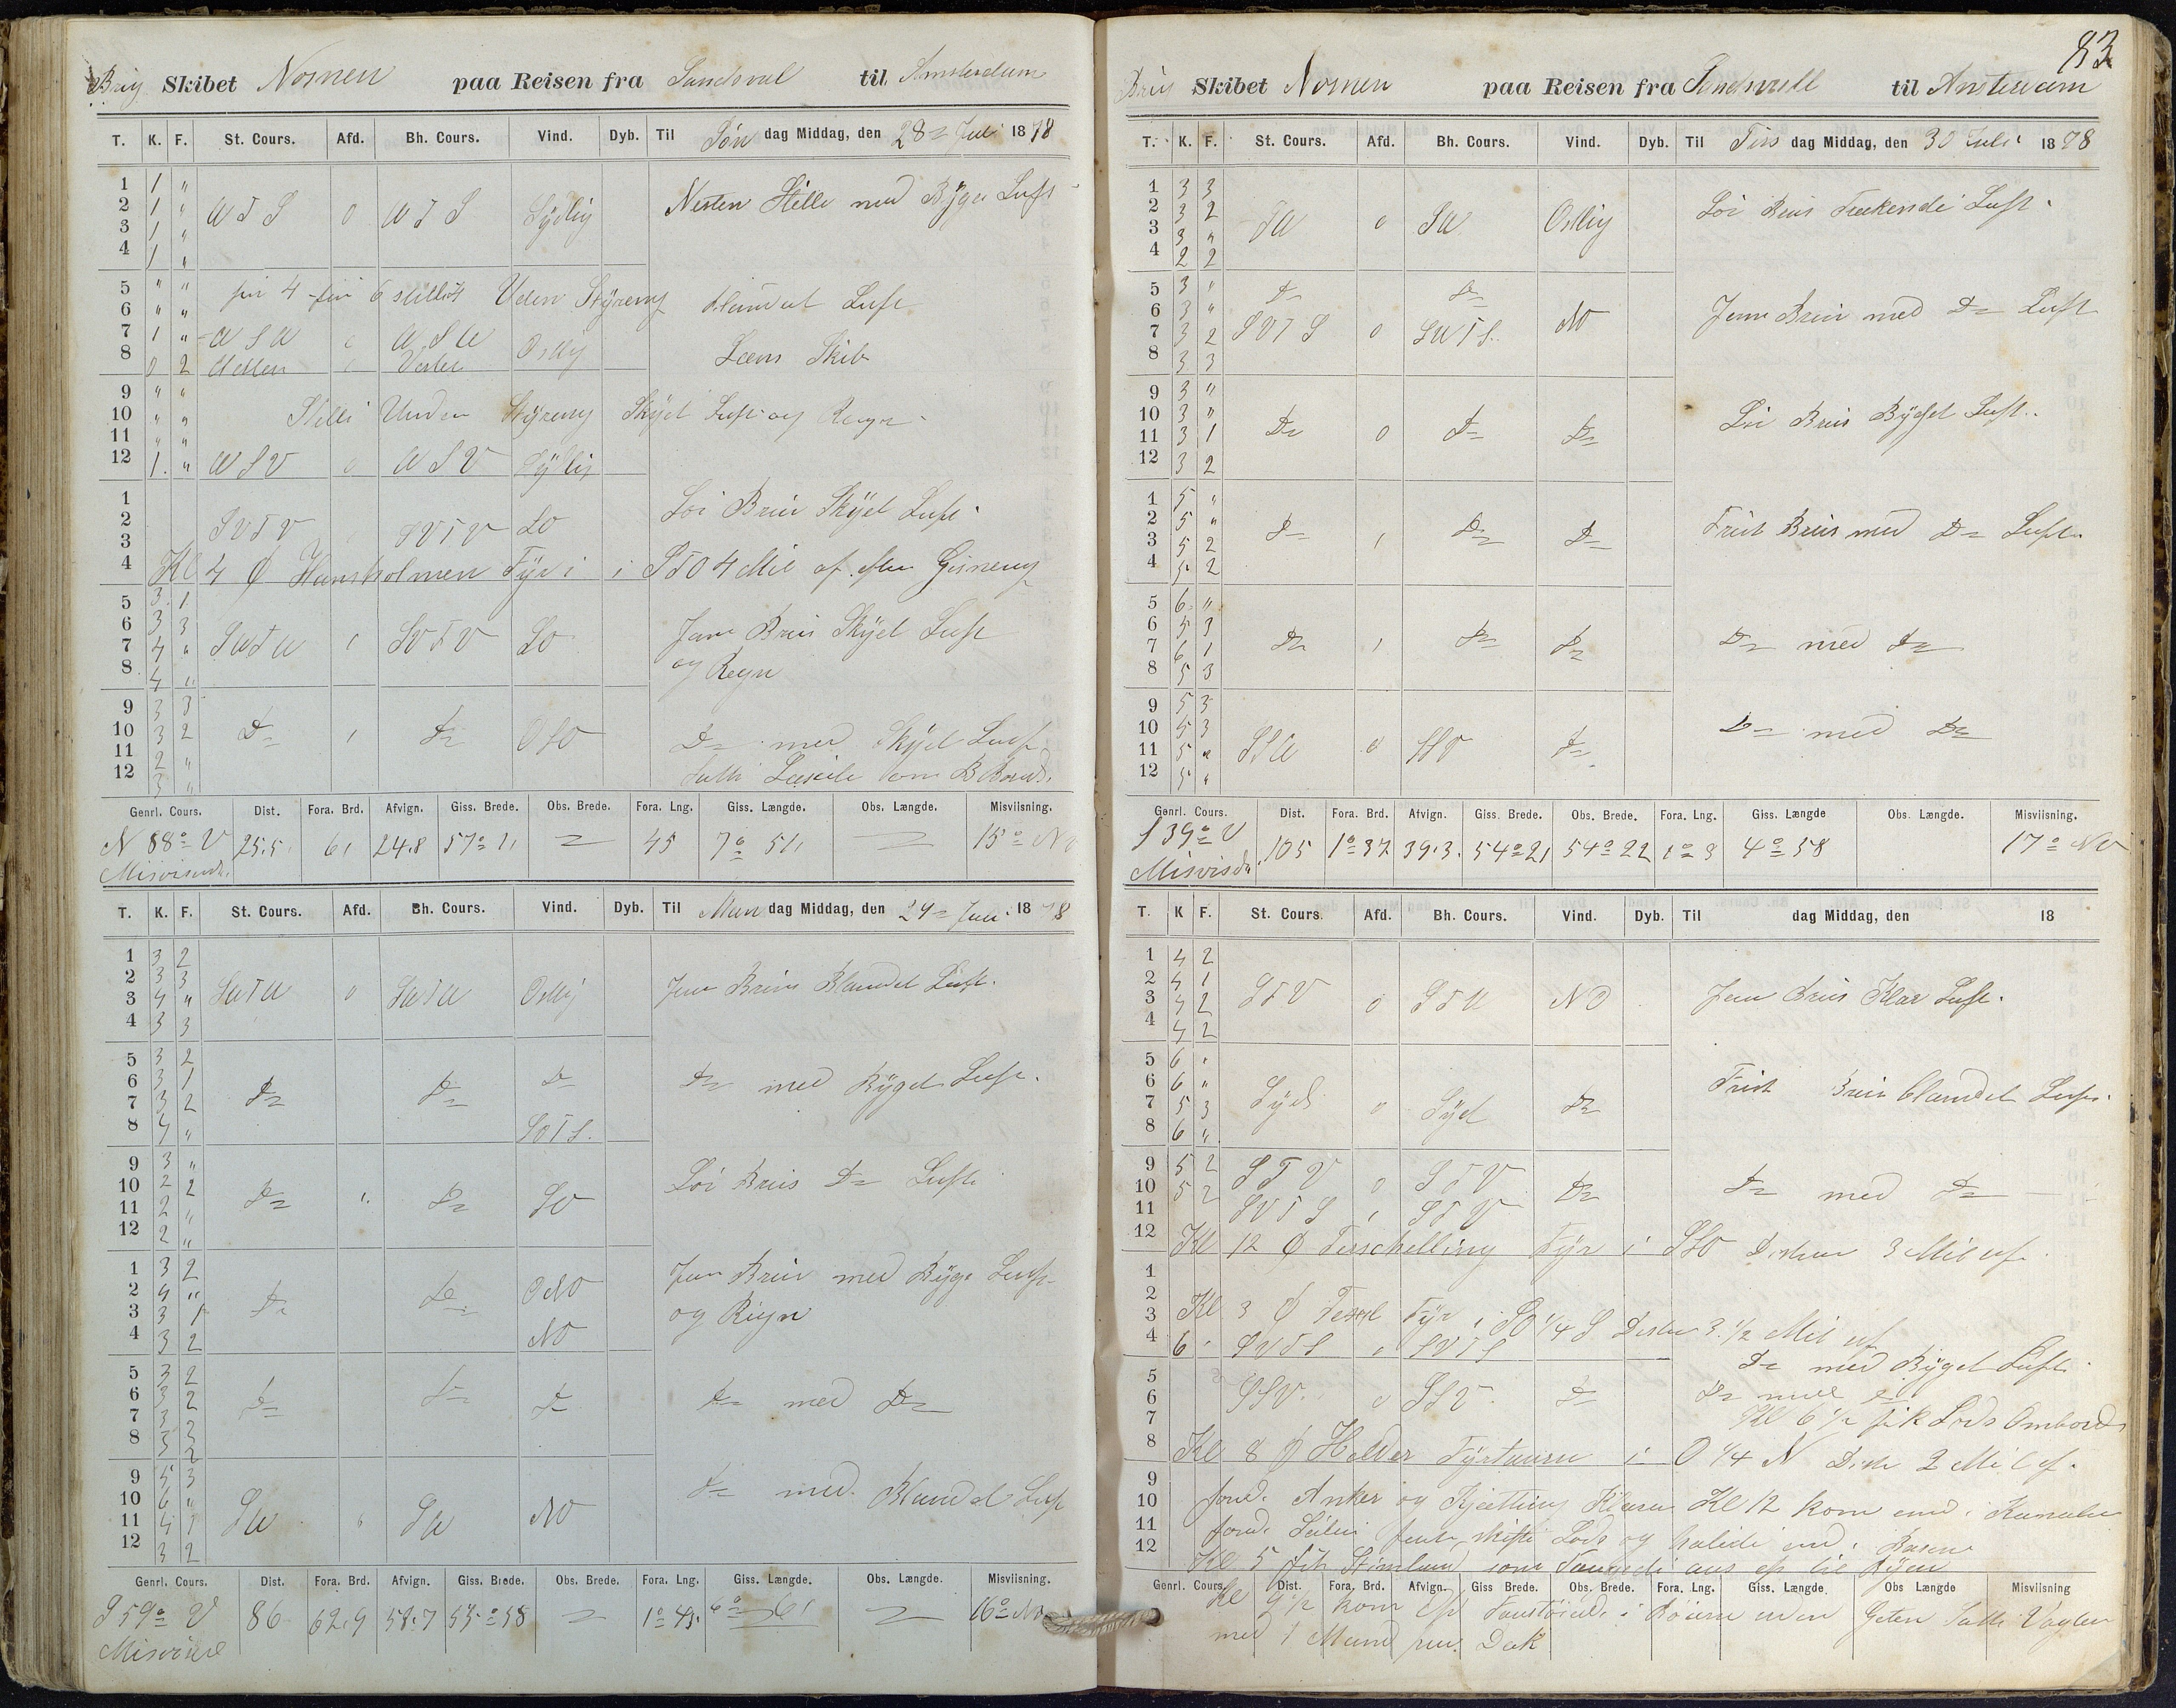 Brig Skibet Nornen paa Reisen fra Sandsval til Amsterdam
T. K. F. St. Cours. Afd. Bh. Cours. Vind. Dyb. Til Søn dag Middag, den 28 = Juli 1878
1 1 "
2 1 " W T S 0 W T S Sÿdlig Nesten Stille med Bÿger Luft
3 1 "
4 1 "
5 " " fra 4 6 Uden Stÿreng Blandet Luft
6 " "
7 1 " W S W W S W Ostlig Læns Skib
8 0 2
9 " "
10 " " Stelle Stÿreng Skÿet Luft og Regn
11 " "
12 1 " W S V 0 W S V Sÿdlig
1
2 Loi Breis Skÿet Luft
3 S V T V S V T V SO
4 Kl 4 Ø Hansholmen Fÿr i S T O 4 Mil af efter Gisneng
5 3 1
6 3 3 Jam Breis Skÿet Luft
7 4 " S W T W S V T V SO og Regn
8 4 "
9 3 3
10 3 2 D= D= OSO D= med Skÿet Luft
11 2 "
12 3 "
Genrl. Cours. Dist. Fora. Brd. Afvign. Giss. Brede. Obs. Brede. Fora. Lng. Giss. Længde. Obs. Længde. Misviisning.
N 88° V 25.5 6, 24.8 57° 1, = 45 7° 51, = 15° NV
Misvisende
T. K. F. St. Cours. Afd. Bh. Cours. Vind. Dyb. Til Man dag Middag, den 29 = Juli 1878
1 3 2
2 3 3 S W T W 0 S W T W Ostlig Jam Breis Blandet Luft.
3 4 "
4 3 3
5 3 2
6 3 1 D= D= D= D= med Bÿget Luft.
7 3 2
8 4 " SO T S.
9 3 "
10 2 2 D= " D= SO Loi Breis D= Luft
11 2 "
12 2 "
1 3 2 Jam Breis med Bÿge Luft
2 4 " D= D= ONO og Regn
3 3 1
4 3 2 NO
5 3 2
6 3 2 D= D= D= D= med D=
7 3 3
8 3 2
9 5 3
10 6 " D= med Blandet Luft
11 4 1 SW SW NO
12 3 2
Genrl. Cours. Dist. Fora. Brd. Afvign. Giss. Brede. Obs. Brede. Fora. Lng. Giss. Længde. Obs. Længde. Misviisning.
S 59° V 86 62.9 58.7 55° 58 = 1° 43. 6° 6, = 16° NV
Misvisend
83
Brig Skibet Nornen paa Reisen fra Sandsvall til Amsterdam
T. K. F. St. Cours. Afd. Bh. Cours. Vind. Dyb. Til Tirs dag Middag, den 30 Juli 1878
1 3 3
2 3 2 SW 0 SW Ostlig Loi Breis Trækende Luft
3 3 "
4 2 2
5 3 " D= D=
6 3 " NO Jam Breis med D= Luft
7 3 2 S V T S 0 S W T S.
8 3 3
9 3 "
10 3 " D= 0 D= D= Loi Breis Bÿget Luft.
11 3 1
12 3 2
1 5 "
2 5 " D= D= D= Frisk Breis med D= Luft
3 5 2
4 5 2
5 6 "
6 5 3 D= D= D= D= med D=
7 6 1
8 5 3
9 5 3
10 5 3 S S W 0 S S V D= D= med D=
11 5 "
12 5 "
Genrl. Cours. Dist. Fora. Brd. Afvign. Giss. Brede. Obs. Brede. Fora. Lng. Giss. Længde Obs. Længde. Misviisning.
S 39° V 105 1° 37 39.3. 54° 21 54° 22 1° 3 4° 58 17° NV
Misvisd
T. K F. St. Cours. Afd. Bh. Cours. Vind. Dyb. Til dag Middag, den 18
1 4 2
2 4 1 S T V 0 S T V NO Jam Breis Klar Luft.
3 4 2
4 4 2
5 6 "
6 6 " Sÿd 0 Sÿd D= Frisk Breis blandet Luft.
7 5 3
8 6 "
9 5 2 S T V 0 S T V D= D= med D=
10 5 2
11 S V T S S T V
12 Kl 12 Ø Terschelling Fÿr i SSO Distan 3 Mil af.
1
2
3 Kl 3 Ø Texel Fÿr i SO 1/4 S Distan 3 1/2 Mil af
4 6 " S V T S S V T S D= med Bÿget Luft.
5 S S V. 0 S S V. D= D= med
6
7 Kl 6 1/2 fik Lods Ombord
8 Kl 8 Ø Helder Fÿrtaarn i O 1/4 N Dist 2 Mil af.
9
10 Anker og Kjætting Klaren Kl 12 kom end i Kanalen
11 Seilene skifte Lods og halede end i Basen
12 Kl 5 fik som os til Bÿen
Genrl. Cours Dist. Fora. Brd. Afvign. Giss Brede. Obs. Brede. Fora. Lng. Giss. Længde. Obs Længde Misviisning
Kl 9 1/2 kom i Satte Vagten
med 1 Mand paa Dæk